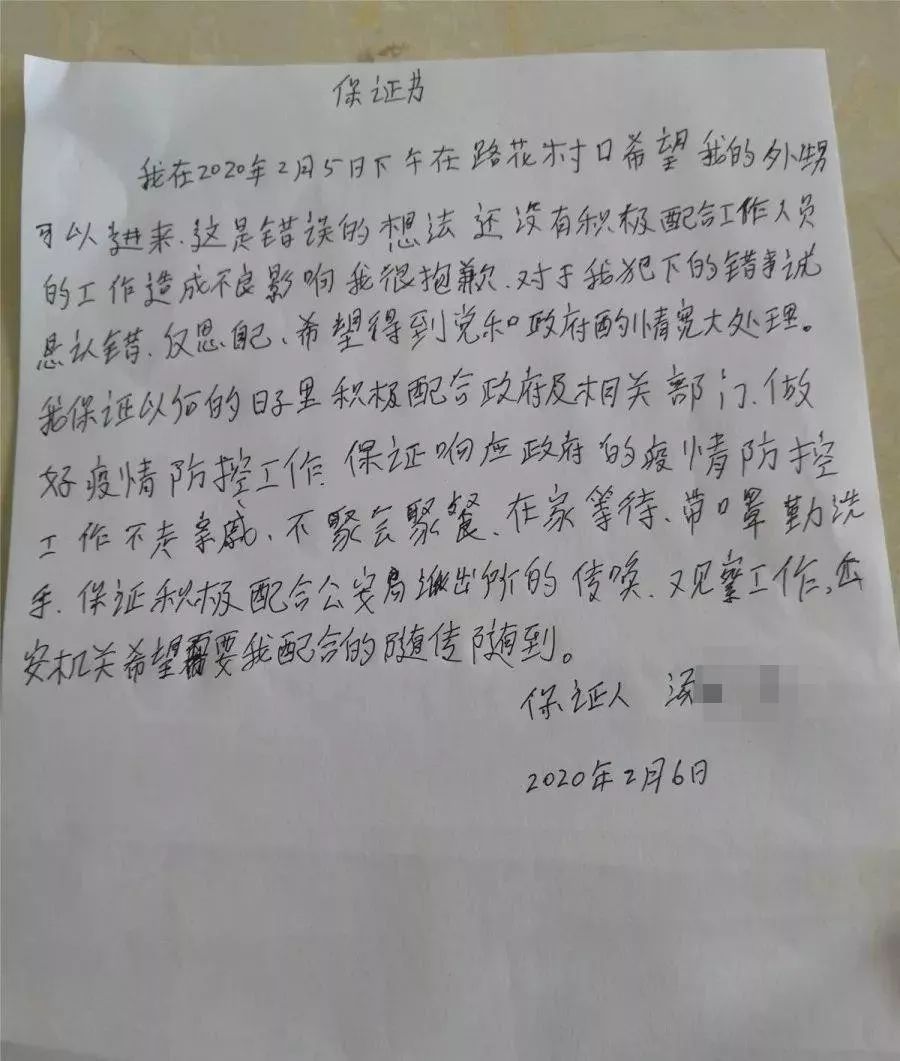 保证书
我在2020年2月5日下午在路花村口希望我的外甥
可以进来.这是错误的想法还没有积极配合工作人员
的工作造成不良影响我很抱歉.对于我犯下的错事诚
恳认错.反思自己、希望得到党和政府酌情宽大处理。
我保证以后的日子里积极配合政府及相关部门.做
好疫情防控工作.保证响应政府的疫情防控
工作不走亲戚、不聚会聚餐.在家等待、带口罩勤洗
手.保证积极配合公安局派出所的传唤.观察工作,公
安机关希望需要我配合的随传随到。
保证人
2020年2月6日